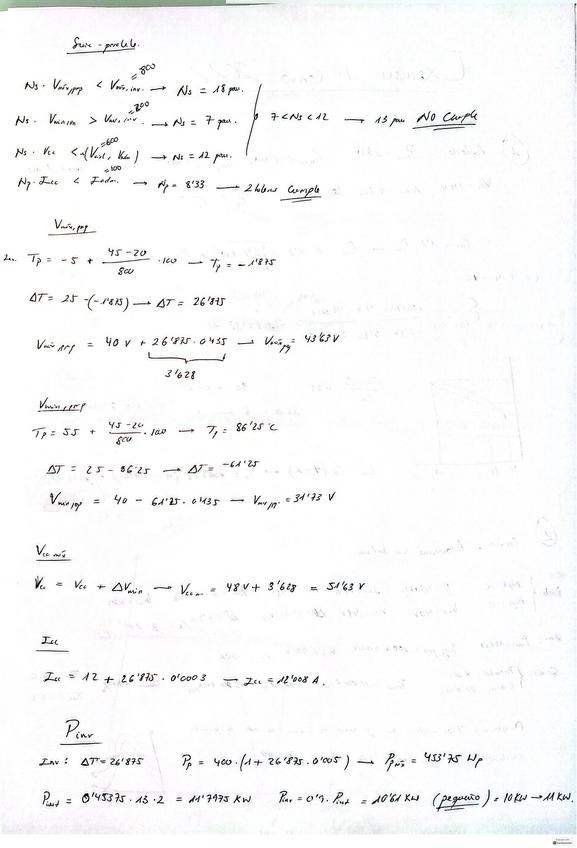 Serie - paralelo.
Ns · Vmáx,pmp < Vmáx,inv. =800 → Ns = 18 pan.
Ns · Vmin,pmp > Vmin,inv. =200 → Ns = 7 pan.
7 < Ns < 12 → 13 pan NO Cumple
Ns · Vcc < (Vaisl, Vadm) =600 → Ns = 12 pan.
Np · Icc < Iadm. =100 → Np = 8'33 → 2 líneas Cumple
Vmáx,pmp
Tp = -5 + 45-20/800 · 100 → Tp = -1'875
ΔT = 25 -(-1'875) → ΔT = 26'875
Vmáx,pmp = 40 V + 26'875 · 0'135 → Vmáx,pmp = 43'63 V
3'628
Vmin,pmp
Tp = 55 + 45-20/800 · 100 → Tp = 86'25 ºC
ΔT = 25 - 86'25 → ΔT = -61'25
Vmin,pmp = 40 - 61'25 · 0'135 → Vmin,pmp = 31'73 V
Vcc máx
Vcc = Vcc + ΔVmin → Vcc m. = 48 V + 3'628 = 51'63 V
Icc
Icc = 12 + 26'875 · 0'0003 → Icc = 12'008 A.
Pinv
Inv: ΔT = 26'875 Pp = 400 · (1 + 26'875 · 0'005) → Pp máx = 453'75 Wp
Pinst = 0'45375 · 13 · 2 = 11'7975 KW Pinv = 0'9 · Pinst = 10'61 KW (pequeño) = 10 KW → 11 KW.